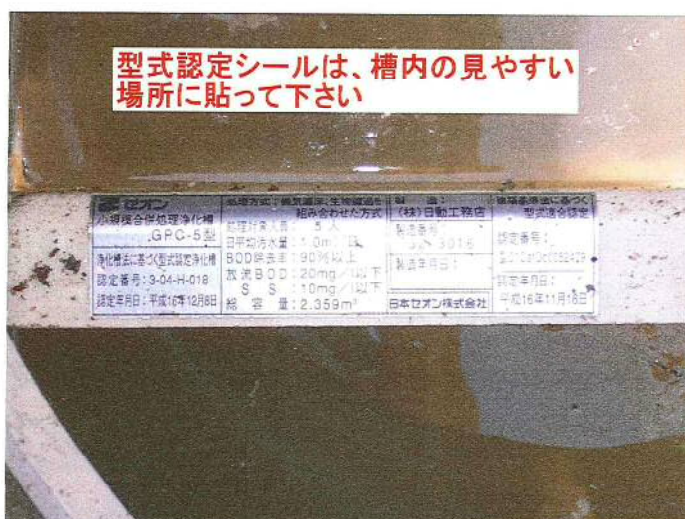 型式認定シールは、槽内の見やすい
場所に貼って下さい
ゼオン
小規模合併処理浄化槽
GPC-5型
浄化槽法に基づく型式認定浄化槽
認定番号:3-04-H-018
認定年月日:平成16年12月8日
組み合わせた方式
処理対象人員: 5 人
日平均汚水量:1.0m³/日
BOD除去率:90%以上
放流BOD:20mg/l以下
S S:10mg/l以下
総 容 量:2.359m³
製 造:
(株)日動工務店
製造番号
製造年月日:
日本ゼオン株式会社
建築基準法に基づく
型式適合認定
認定番号:
認定年月日:
平成16年11月18日